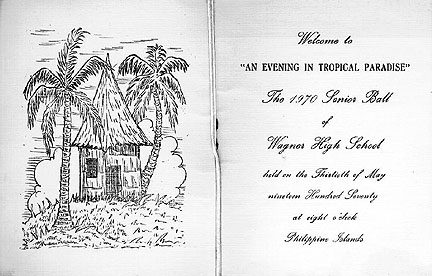 Welcome to
"AN EVENING IN TROPICAL PARADISE"
The 1970 Senior Ball
of
Wagner High School
held on the Thirtieth of May
nineteen Hundred Seventy
at eight o'clock
Philippine Islands